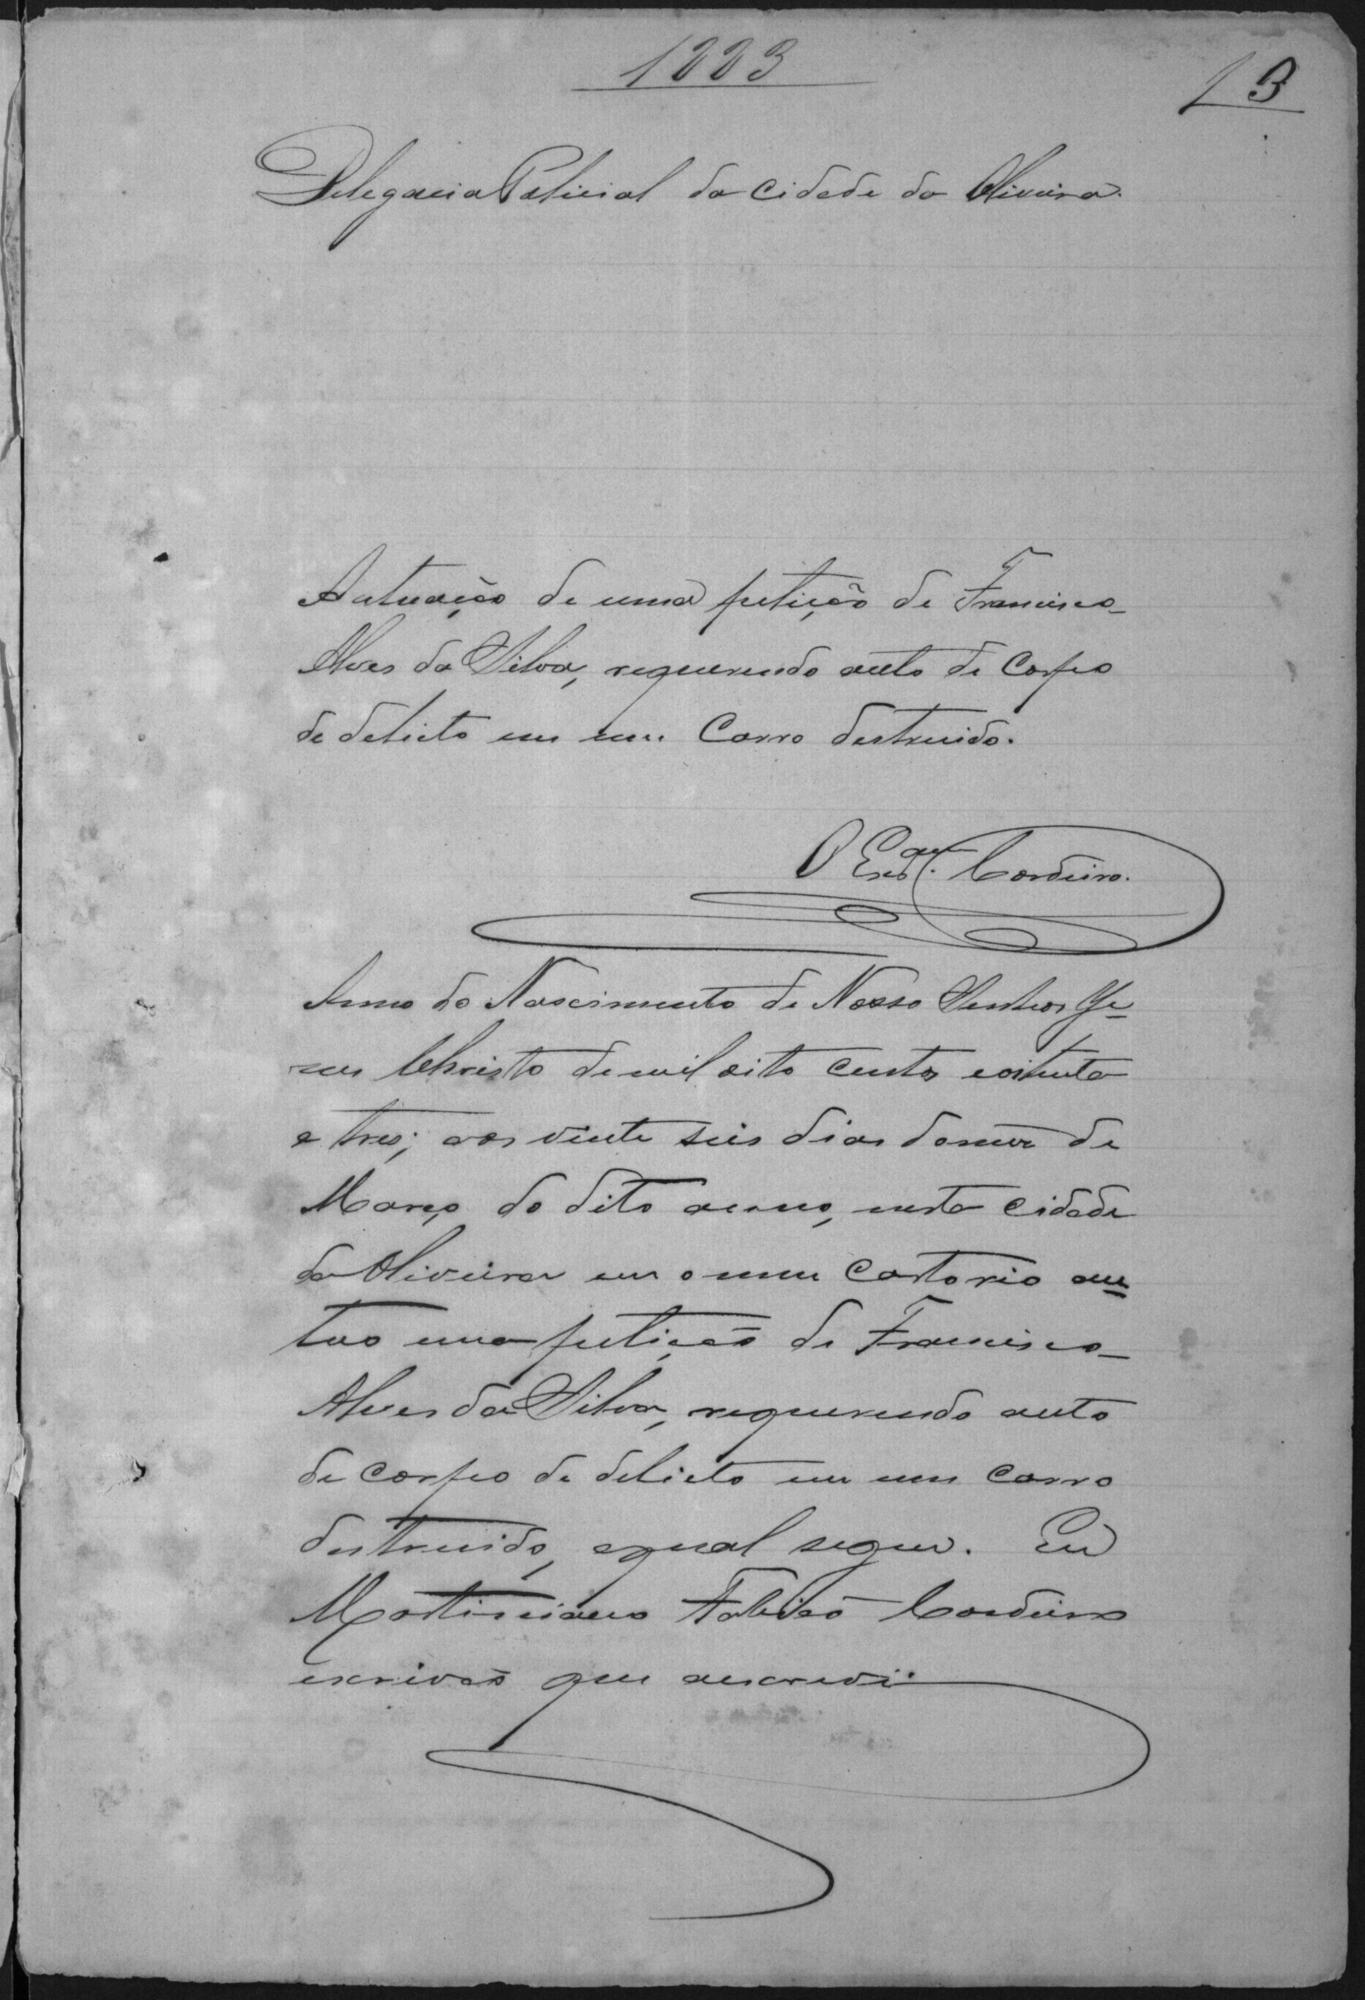 1883
1 3
Delegacia Policial da cidade da Oliveira.
Autuação de uma petição de Francisco
Alves da Silva, requerendo auto de Corpo
de delicto em um Carro destruido.
O Escam. Cordeiro.
Anno do Nascimento de Nosso Senhor Je-
zus Christo de mil oito centos e oitenta
e tres; aos vinte seis dias do mez de
Março do dito anno, nesta cidade
da Oliveira em o meu Cartorio au-
tuo uma petição de Francisco
Alves da Silva, requerendo auto
de corpo de delicto em um carro
destruido, a qual segue. Eu
Martiniano Fabião Cordeiro
escrivão que escrevi.